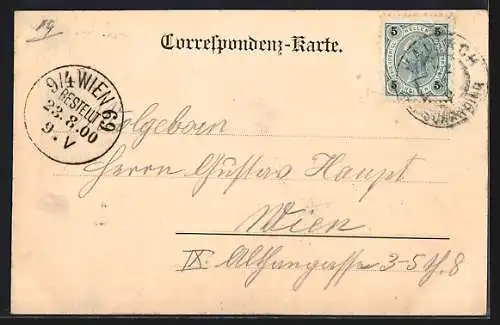 Correspondenz-Karte.
5 5
5 5
9/4 WIEN 69
BESTELLT
23.8.00
9.V
Herrn Gustav Haupt
Wien
IX. Althangasse 3-5 th. 8